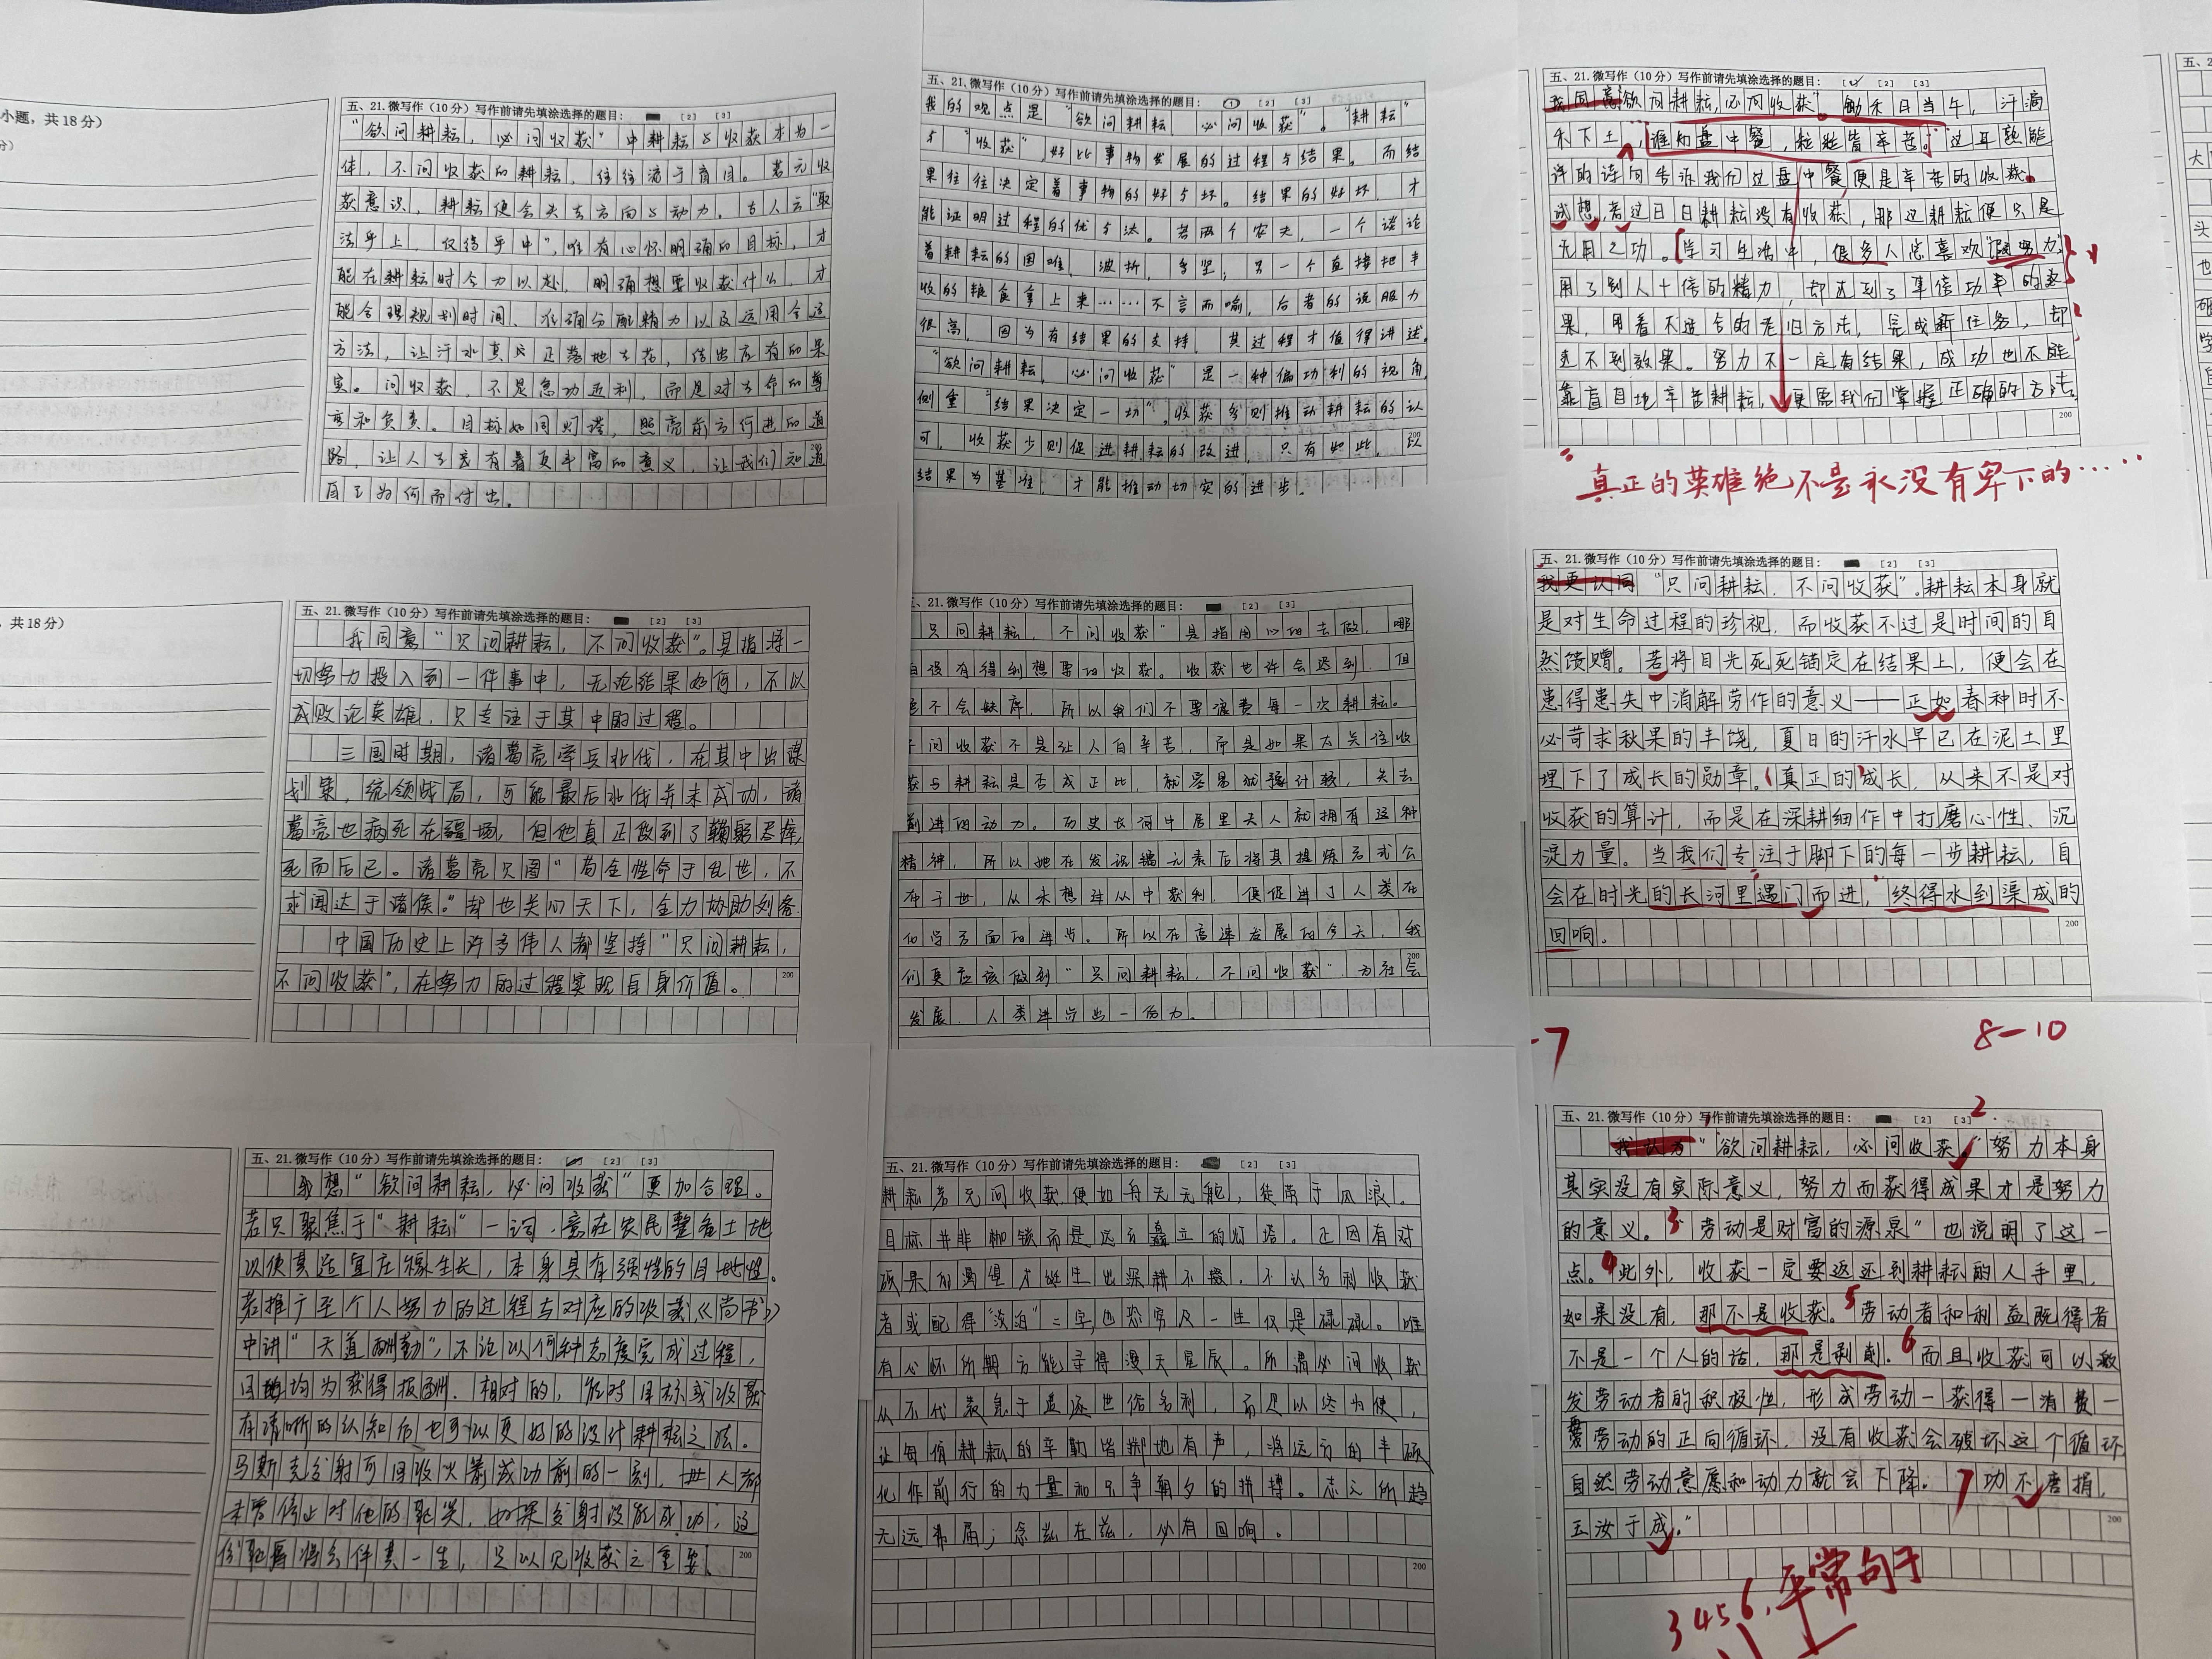 小题，共18分）
五、21.微写作（10分）写作前请先填涂选择的题目： [2] [3]
“欲问耕耘，必问收获”中耕耘与收获本为一
体，不问收获的耕耘，往往流于盲目。若无收
获意识，耕耘便会失去方向与动力。古人云“取
法乎上，仅得乎中”，唯有心怀明确的目标，才
能在耕耘时全力以赴，明确想要收获什么，才
能合理规划时间、准确分配精力以及运用合适
方法，让汗水真正落地生花，结出应有的果
实。问收获，不是急功近利，而是对生命的尊
重和负责。目标如同灯塔，照亮前方行进的道
路，让人生富有着更丰富的意义，让我们知道
自己为何而付出。
五、21.微写作（10分）写作前请先填涂选择的题目： [1] [2] [3]
我的观点是“欲问耕耘，必问收获”。“耕耘”
与“收获”，好比事物发展的过程与结果。而结
果往往决定着事物的好与坏。结果的好坏，才
能证明过程的优与法。若两个农夫，一个谈论
着耕耘的困难、波折、辛坚；另一个直接把丰
收的粮食拿上来……不言而喻，后者的说服力
很高，因为有结果的支持，其过程才值得讲述。
“欲问耕耘，必问收获”是一种偏功利的视角，
侧重“结果决定一切”。收获多则推动耕耘的认
可，收获少则促进耕耘的改进，只有如此，以
结果为基准，才能推动切实的进步。
五、21.微写作（10分）写作前请先填涂选择的题目： [1] [2] [3]
我同意欲问耕耘，必问收获”。锄禾日当午，汗滴
禾下土，谁知盘中餐，粒粒皆辛苦。”这耳熟能
详的诗句告诉我们这盘中餐便是辛苦的收获。
试想，若过日日耕耘没有收获，那这耕耘便只是
无用之功。学习生活中，很多人总喜欢“假努力”
用了别人十倍的精力，却达到了事倍功半的效
果，用着不适合的老旧方法，完成新任务，却
达不到效果。努力不一定有结果，成功也不能
靠盲目地辛苦耕耘，更需我们掌握正确的方法。
200
“真正的英雄绝不是永没有卑下的……
，共18分）
五、21.微写作（10分）写作前请先填涂选择的题目： [2] [3]
我同意“只问耕耘，不问收获”。是指将一
切努力投入到一件事中，无论结果如何，不以
成败论英雄，只专注于其中的过程。
三国时期，诸葛亮率兵北伐，在其中出谋
划策，统领战局，可能最后北伐并未成功，诸
葛亮也病死在疆场，但他真正做到了鞠躬尽瘁，
死而后已。诸葛亮只图“苟全性命于乱世，不
求闻达于诸侯。”却也关心天下，全力协助刘备
中国历史上许多伟人都坚持“只问耕耘，
不问收获”，在努力的过程实现自身价值。
200
五、21.微写作（10分）写作前请先填涂选择的题目： [2] [3]
只问耕耘，不问收获”是指用心的去做，哪
没有得到想要的收获。收获也许会迟到，但
不会缺席，所以我们不要浪费每一次耕耘。
问收获不是让人白辛苦，而是如果太关注收
获与耕耘是否成正比，就容易犹豫计较，失去
前进的动力。历史长河中居里夫人就拥有这种
精神，所以她在发识镭元素后将其提炼方式公
布于世，从未想过从中获利，便促进了人类在
化学方面的进步。所以在高速发展的今天，我
们更应该做到“只问耕耘，不问收获”，为社会
发展、人类进步出一份力。
五、21.微写作（10分）写作前请先填涂选择的题目： [2] [3]
我更认同“只问耕耘，不问收获”。耕耘本身就
是对生命过程的珍视，而收获不过是时间的自
然馈赠。若将目光死死锚定在结果上，便会在
患得患失中消解劳作的意义——正如春种时不
必苛求秋果的丰饶，夏日的汗水早已在泥土里
埋下了成长的勋章。真正的成长，从来不是对
收获的算计，而是在深耕细作中打磨心性、沉
淀力量。当我们专注于脚下的每一步耕耘，自
会在时光的长河里遇门而进，终得水到渠成的
回响。
200
-7
8-10
五、21.微写作（10分）写作前请先填涂选择的题目： [2] [3]
我想“欲问耕耘，必问收获”更加合理。
若只聚焦于“耕耘”一词，意在农民整备土地
以使其适宜庄稼生长，本身具有强性的目地性。
若推广至个人努力的过程与对应的收获《尚书》
中讲“天道酬勤”，不论以何种态度完成过程，
目地均为获得报酬。相对的，能对目标或收获
有清晰的认知后也可以更好的设计耕耘之法。
马斯克发射可回收火箭成功前的一刻，世人都
未曾停止对他的耻笑，如果发射没能成功，这
份耻辱将会伴其一生，足以见收获之重要。
200
五、21.微写作（10分）写作前请先填涂选择的题目： [2] [3]
耕耘若无问收获便如舟无舵，徒荡于风浪。
目标并非枷锁而是远方矗立的灯塔。正因有对
硕果的渴望才诞生出深耕不辍。不认名利收获
者或配得“淡泊”二字，也恐穷及一生仅是碌碌。唯
有心怀所期方能寻得漫天星辰。所谓必问收获
从不代表急于追逐世俗名利，而是以终为使，
让每份耕耘的辛勤皆掷地有声，将远方的丰硕
化作前行的力量和只争朝夕的拼搏。志之所趋
无远弗届；念兹在兹，必有回响。
200
五、21.微写作（10分）写作前请先填涂选择的题目： [2] [3]
2.
我认为“欲问耕耘，必问收获。”努力本身
其实没有实际意义，努力而获得成果才是努力
的意义。3“劳动是财富的源泉”也说明了这一
点。4此外，收获一定要返还到耕耘的人手里，
如果没有，那不是收获。5劳动者和利益既得者
不是一个人的话，那是剥削。6而且收获可以激
发劳动者的积极性，形成劳动一获得一消费一
劳动的正向循环，没有收获会破坏这个循环
自然劳动意愿和动力就会下降。7功不唐捐，
玉汝于成。”
200
3 4 5 6，平常句子